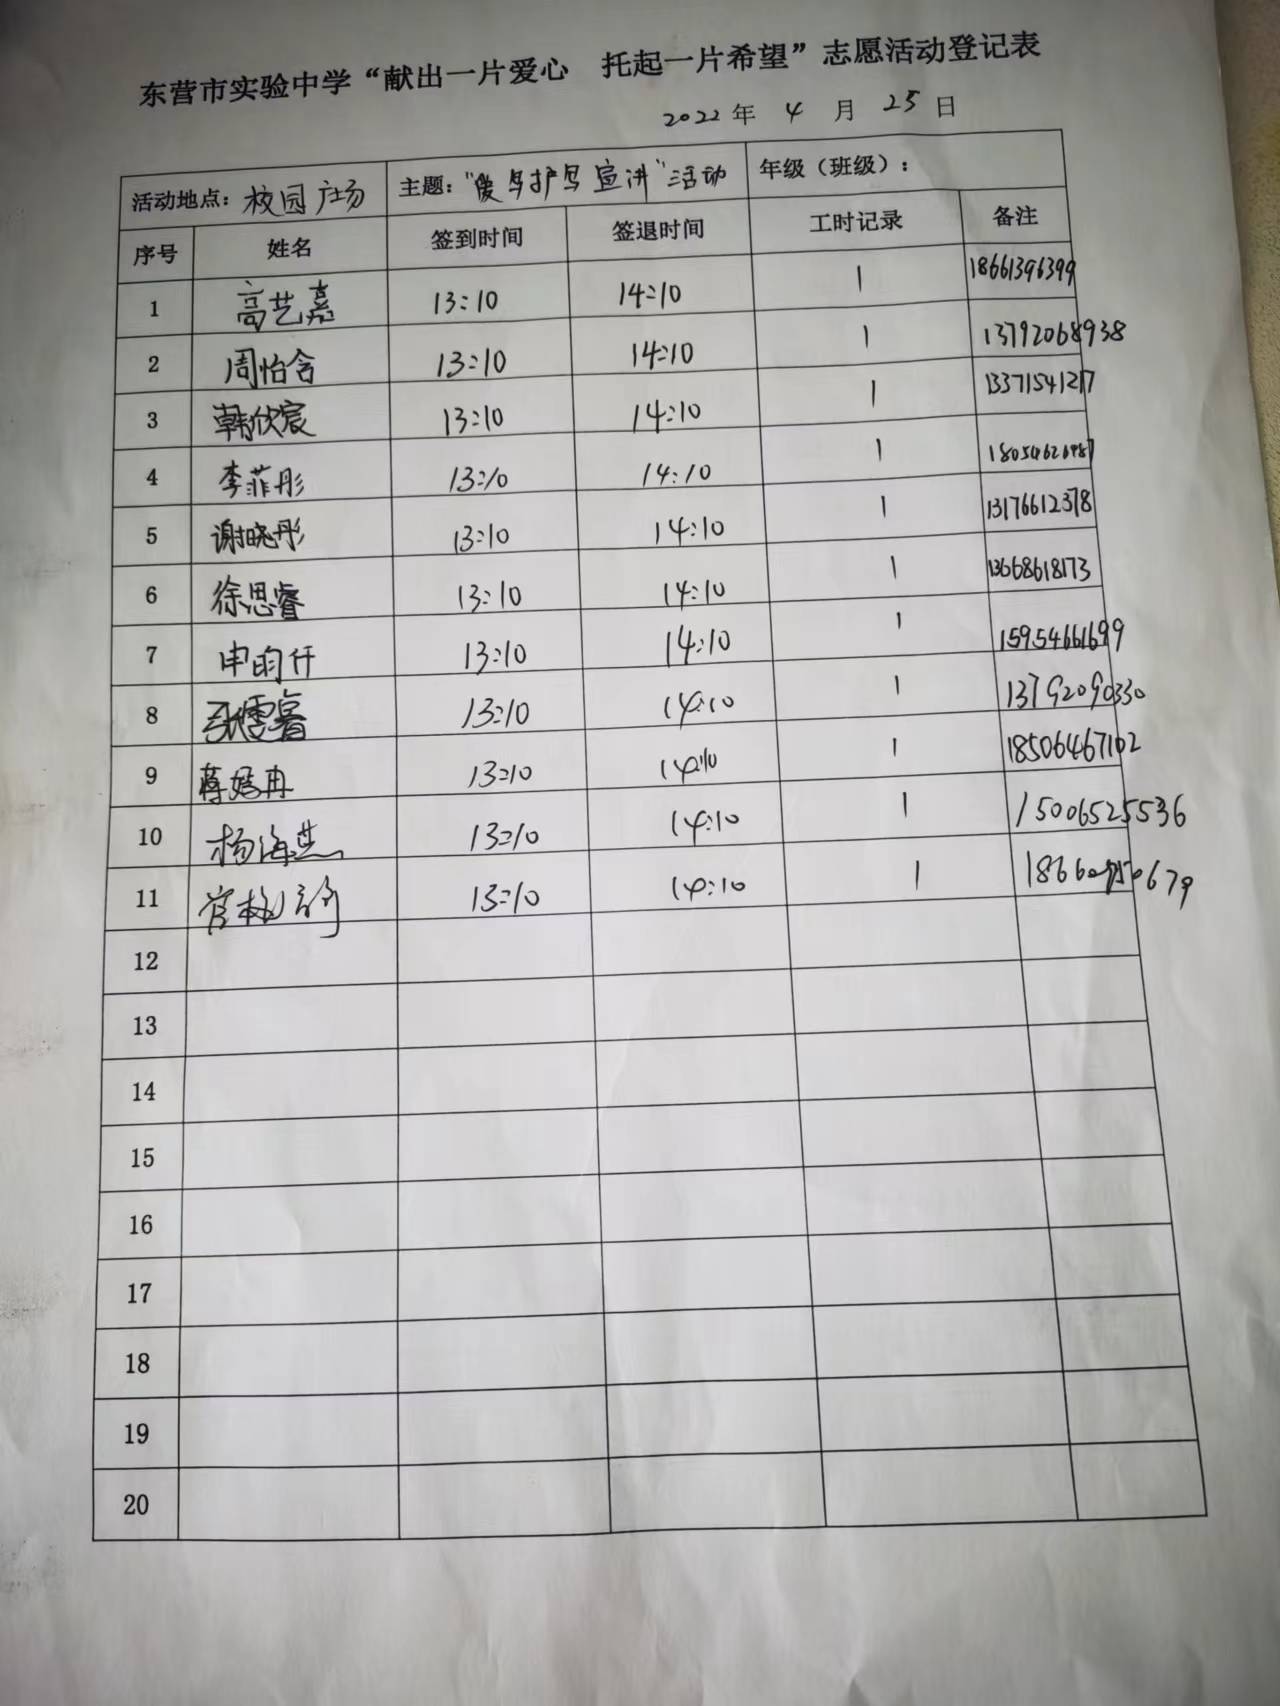 东营市实验中学“献出一片爱心 托起一片希望”志愿活动登记表
2022 年 4 月 25 日
活动地点：校园广场 主题：“爱鸟护鸟宣讲”活动 年级（班级）：
序号 姓名 签到时间 签退时间 工时记录 备注
1 高艺嘉 13:10 14:10 1 18661396399
2 周怡含 13:10 14:10 1 13792068938
3 韩欣宸 13:10 14:10 1 13371541217
4 李菲彤 13:10 14:10 1
5 谢晓彤 13:10 14:10 1 13176612378
6 徐思睿 13:10 14:10 1 13668618173
7 申昀仟 13:10 14:10 1 15954661699
8 13:10 14:10 1 13792090330
9 蒋嫣冉 13:10 14:10 1 18506467102
10 杨海燕 13:10 14:10 1 15006525536
11 13:10 14:10 1
12
13
14
15
16
17
18
19
20